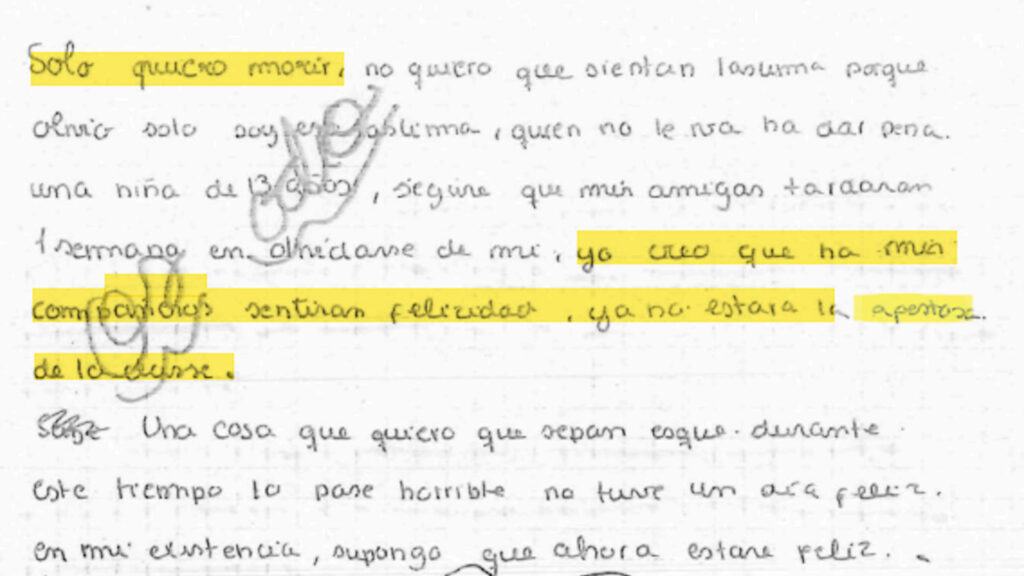 Solo quiero morir, no quiero que sientan lastima porque
obvio solo soy esa victima, quien no le va ha dar pena
una niña de 13 años, seguire que mis amigas tardaran
1 semana en olvidarse de mi, yo creo que ha mis
compañeros sentiran felizidad, ya no estara la apestosa
de la classe.
Una cosa que quiero que sepan esque durante
este tiempo lo pase horrible no tuve un día feliz.
en mi existencia, supongo que ahora estare feliz.